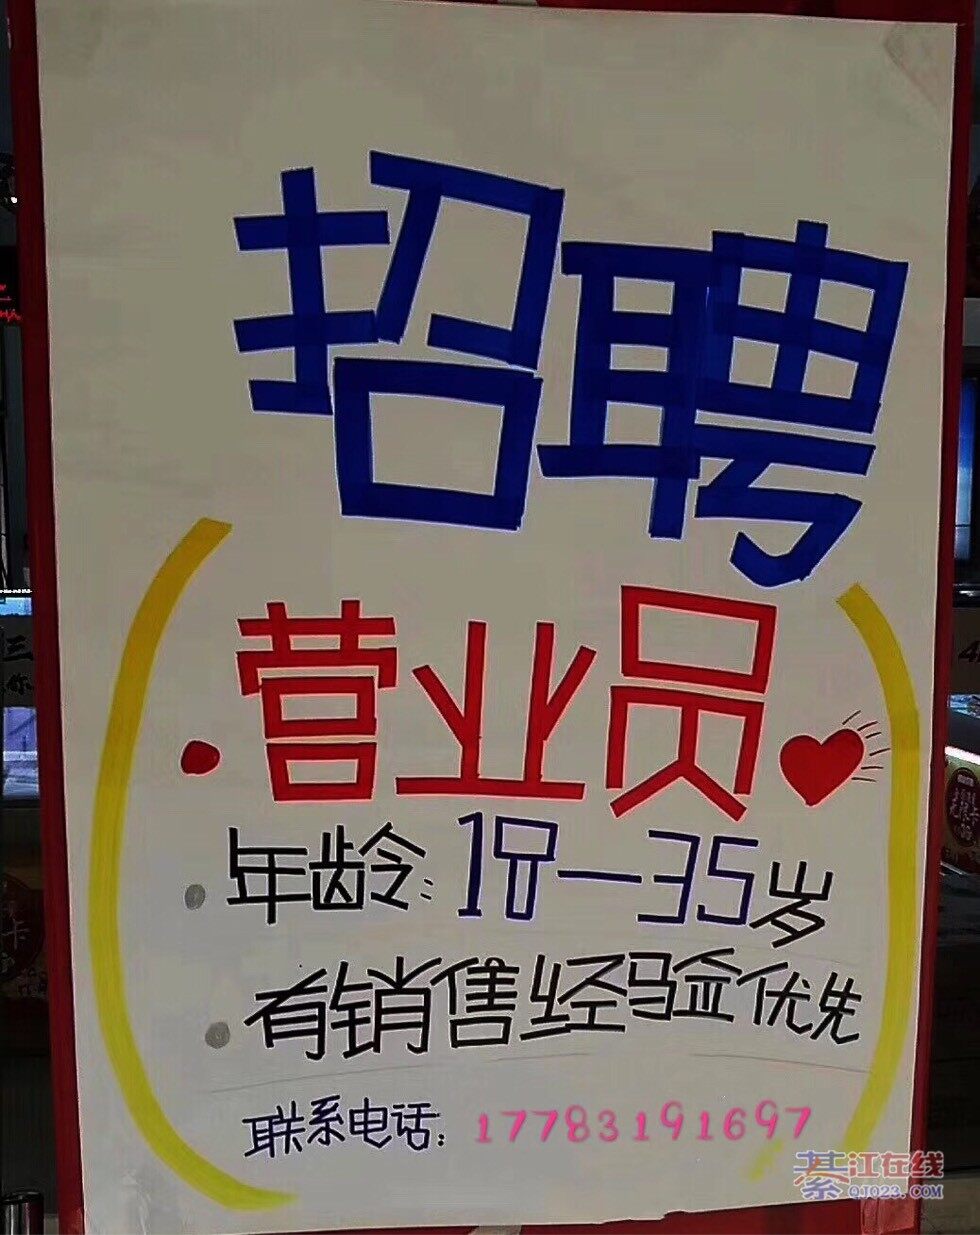 招聘
营业员
年龄:18—35岁
有销售经验优先
联系电话:17783191697
綦江在线
QJ023.COM